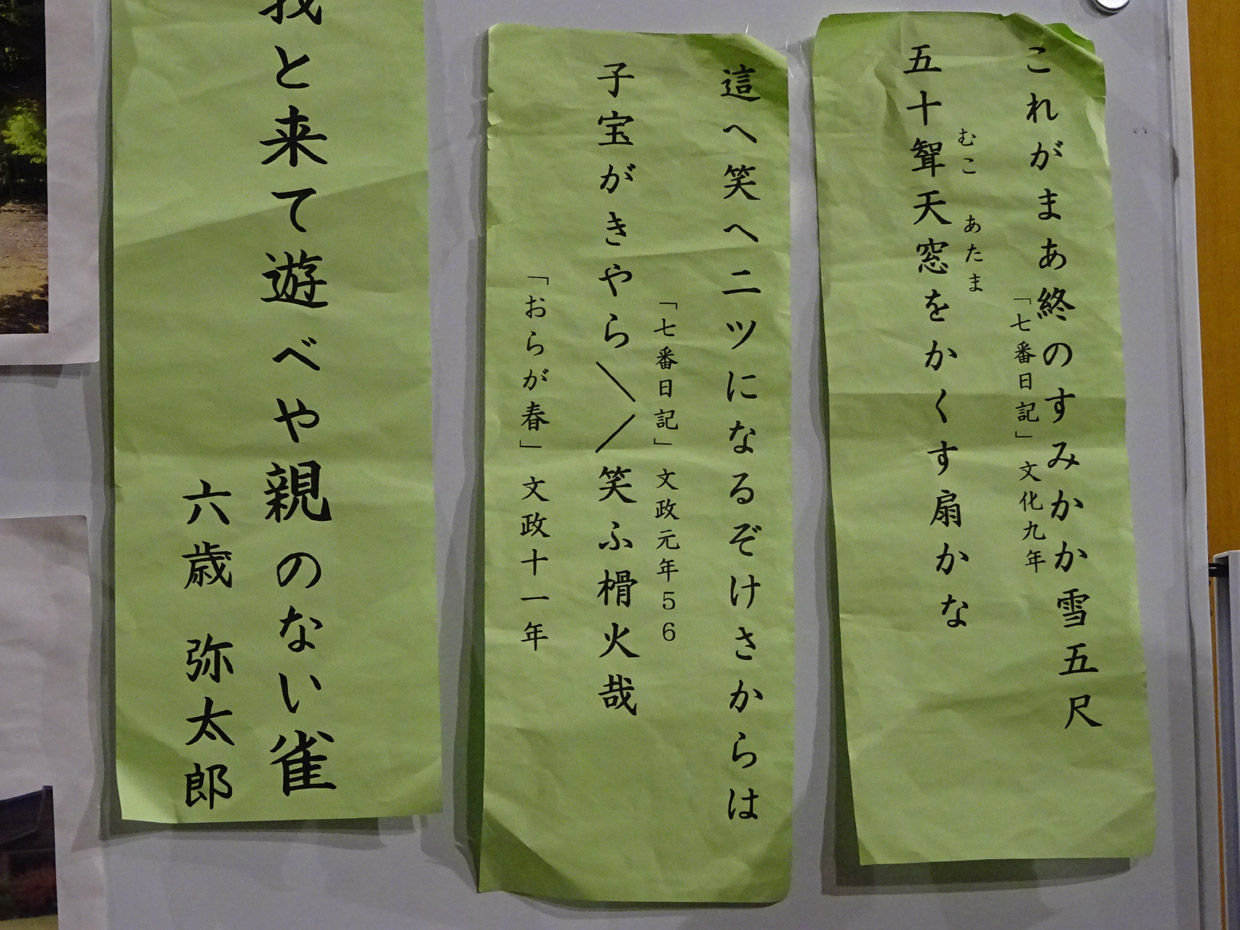 これがまあ終のすみかか雪五尺
「七番日記」文化九年
むこ あたま
五十聟天窓をかくす扇かな
這へ笑へ二ツになるぞけさからは
「七番日記」文政元年56
子宝がきやら〱笑ふ榾火哉
「おらが春」文政十一年
我と来て遊べや親のない雀
六歳 弥太郎